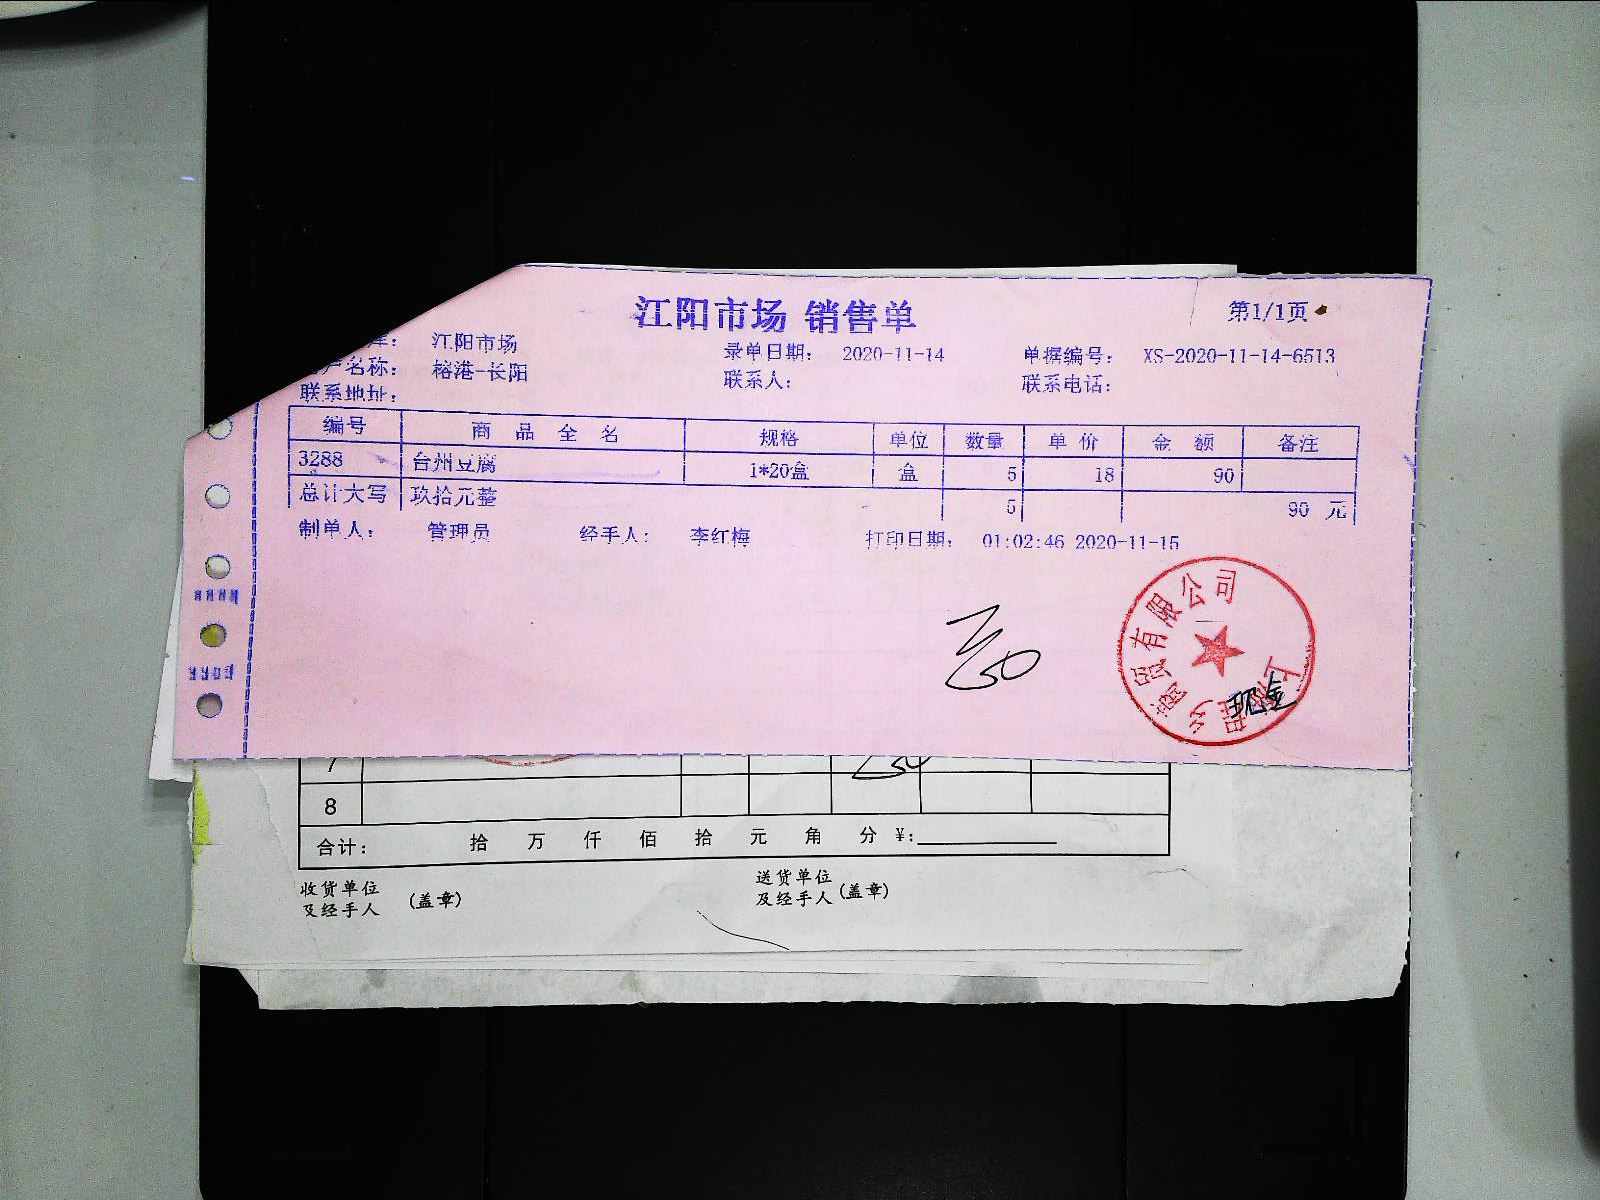 江阳市场 销售单
第1/1页
库： 江阳市场
录单日期： 2020-11-14
单据编号： XS-2020-11-14-6513
户名称： 榕港-长阳
联系人：
联系电话：
联系地址：
编号 商品全名 规格 单位 数量 单价 金额 备注
3288 台州豆腐 1*20盒 盒 5 18 90
总计大写 玖拾元整 5 90 元
制单人： 管理员 经手人： 李红梅 打印日期： 01:02:46 2020-11-15
贸有限公司
7
8
合计： 拾 万 仟 佰 拾 元 角 分 ¥:
收货单位
及经手人 (盖章)
送货单位
及经手人 (盖章)